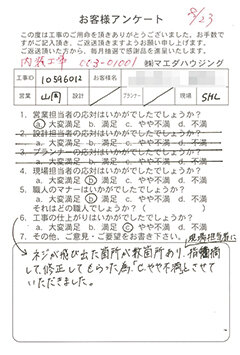 お客様アンケート
8/23
この度は工事のご用命を頂きありがとうございました。お手数で
すがご記入頂き、ご返送頂けますようお願い申し上げます。
ご返送頂いた方から、毎月抽選で感謝品を進呈いたします。
内装工事 CC3-01001 ㈱マエダハウジング
工事ID 10596012 お客様名
営業 山岡 設計 プランナー 現場 SHL
1. 営業担当者の応対はいかがでしたでしょうか?
a 大変満足 b. 満足 c. やや不満 d. 不満
2. 設計担当者の応対はいかがでしたでしょうか?
a. 大変満足 b. 満足 c. やや不満 d. 不満
3. プランナーの応対はいかがでしたでしょうか?
a. 大変満足 b. 満足 c. やや不満 d. 不満
4. 現場担当者の応対はいかがでしたでしょうか?
a. 大変満足 b 満足 c. やや不満 d. 不満
5. 職人のマナーはいかがでしたでしょうか?
a. 大変満足 b 満足 c. やや不満 d. 不満
それはどの職人でしょうか?( )
6. 工事の仕上がりはいかがでしたでしょうか?
a. 大変満足 b. 満足 c やや不満 d. 不満
7. その他、ご意見・ご要望をお書き下さい。
現場担当者に
ネジが飛び出た箇所が数箇所あり、指摘
して、修正してもらった為"c.やや不満"とさせて
いただきました。